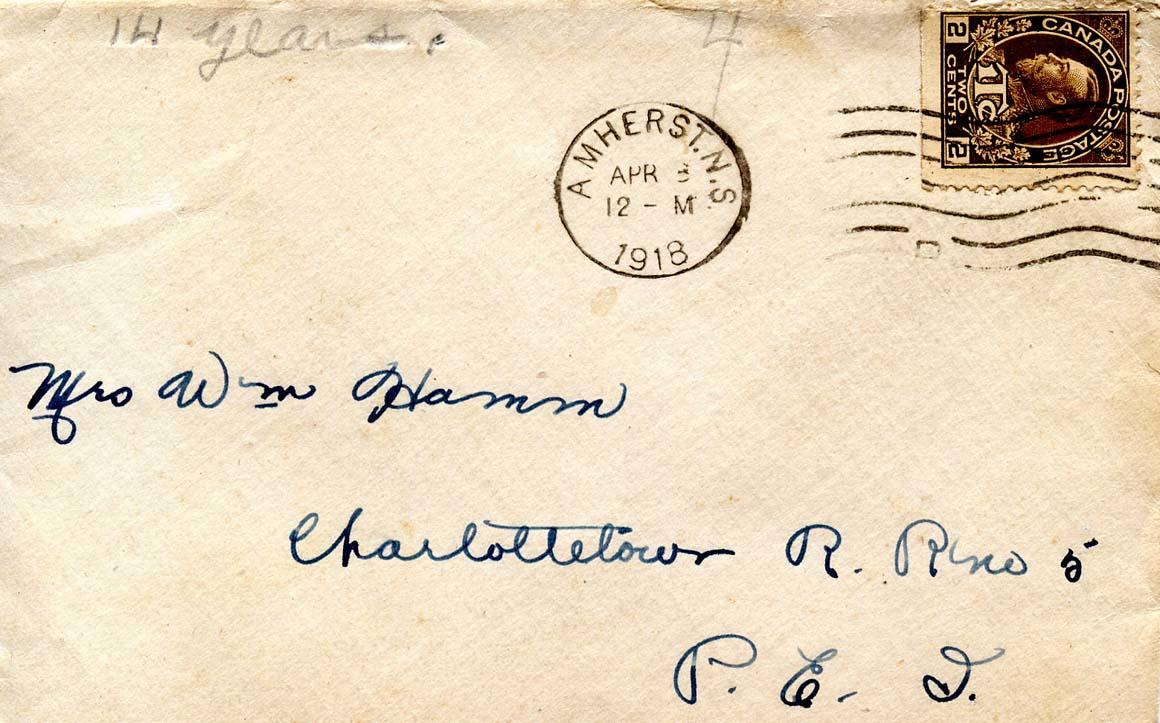 14 years.
4
CANADA POSTAGE
2 TWO CENTS 2
1Tc
AMHERST. N.S.
APR
12 - M
1918
Mrs Wm Hamm
Charlottetown R. R no 5
P. E. I.